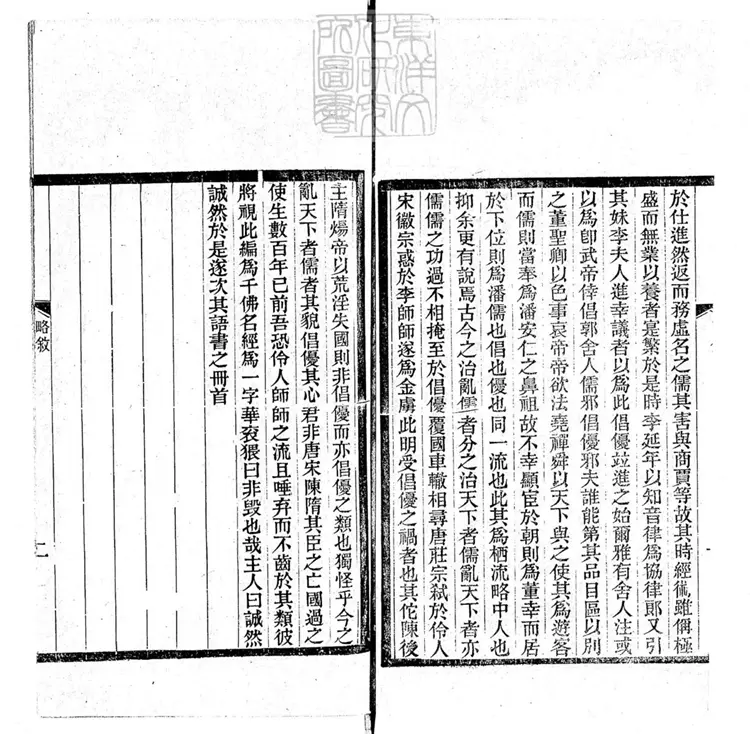 東洋文
化研究
所圖書
於仕進然返而務虛名之儒其害與商賈等故其時經術雖稱極
盛而無業以養者寔繁於是時李延年以知音律為協律郎又引
其妹李夫人進幸議者以為此倡優竝進之始爾雅有舍人注或
以為卽武帝倖倡郭舍人儒邪倡優邪夫誰能第其品目區以別
之董聖卿以色事哀帝帝欲法堯禪舜以天下與之使其為遊客
而儒則當奉為潘安仁之鼻祖故不幸顯宦於朝則為董幸而居
於下位則為潘儒也倡也優也同一流也此其為栖流略中人也
抑余更有說焉古今之治亂儒者分之治天下者儒亂天下者亦
儒儒之功過不相掩至於倡優覆國車轍相尋唐莊宗弒於伶人
宋徽宗惑於李師師遂為金虜此明受倡優之禍者也其佗陳後
主隋煬帝以荒淫失國則非倡優而亦倡優之類也獨怪乎今之
亂天下者儒者其貌倡優其心君非唐宋陳隋其臣之亡國過之
使生數百年已前吾恐伶人師師之流且唾弃而不齒於其類彼
將視此編為千佛名經為一字華袞猥曰非毀也哉主人曰誠然
誠然於是遂次其語書之冊首
略敘
二